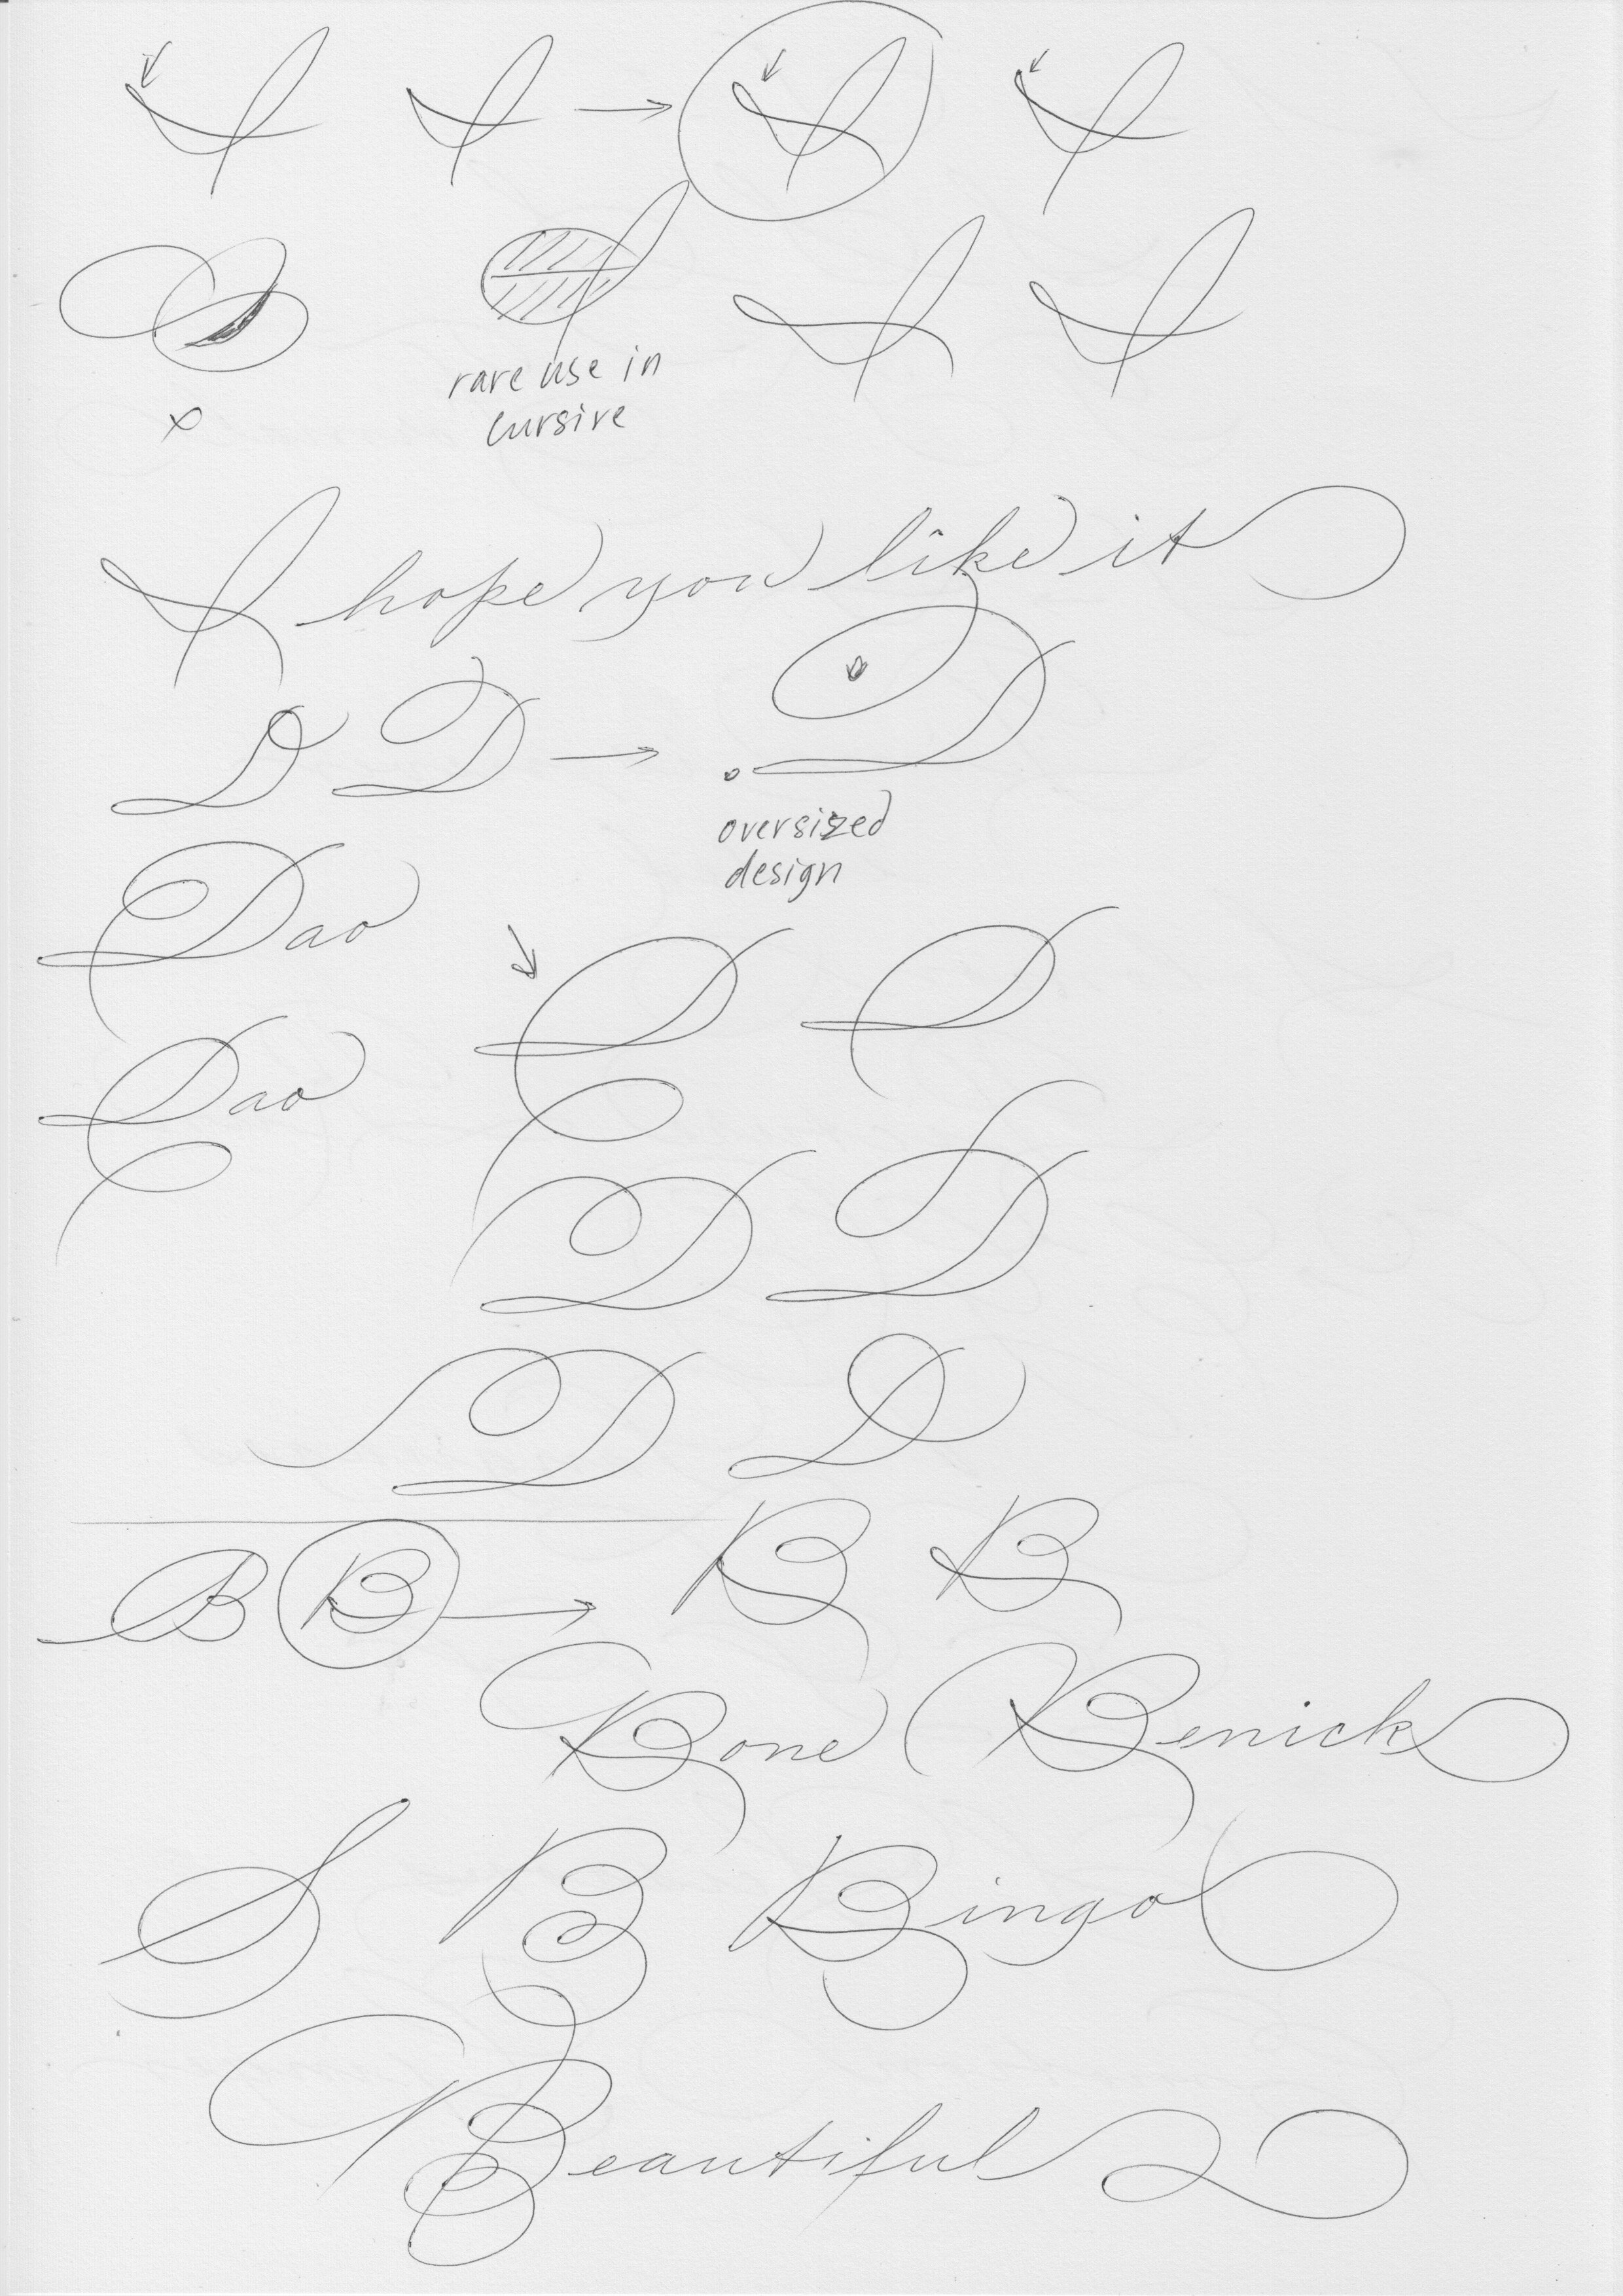 I I I I
I I I I
rare use in
cursive
I hope you like it
D D D
oversized
design
Dao
D D
Dao
D D
D D
B B B B
Bone Benick
S B Bingo
Beautiful